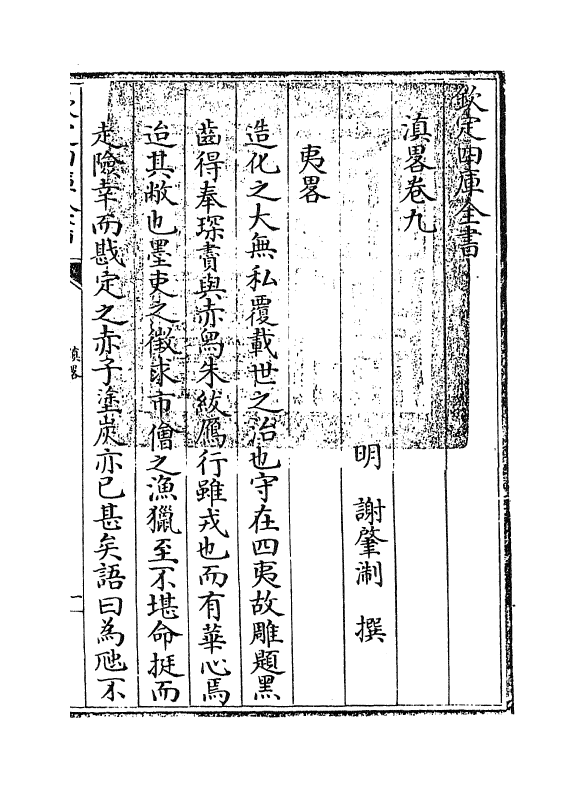 欽定四庫全書
滇畧卷九
明 謝肇淛 撰
夷畧
造化之大無私覆載世之治也守在四夷故雕題黑
齒得奉琛賮與赤舄朱紱鴈行雖戎也而有華心焉
迨其敝也墨吏之徵求市儈之漁獵至不堪命挺而
走險幸而戡定之赤子塗炭亦已甚矣語曰為虺不
滇畧